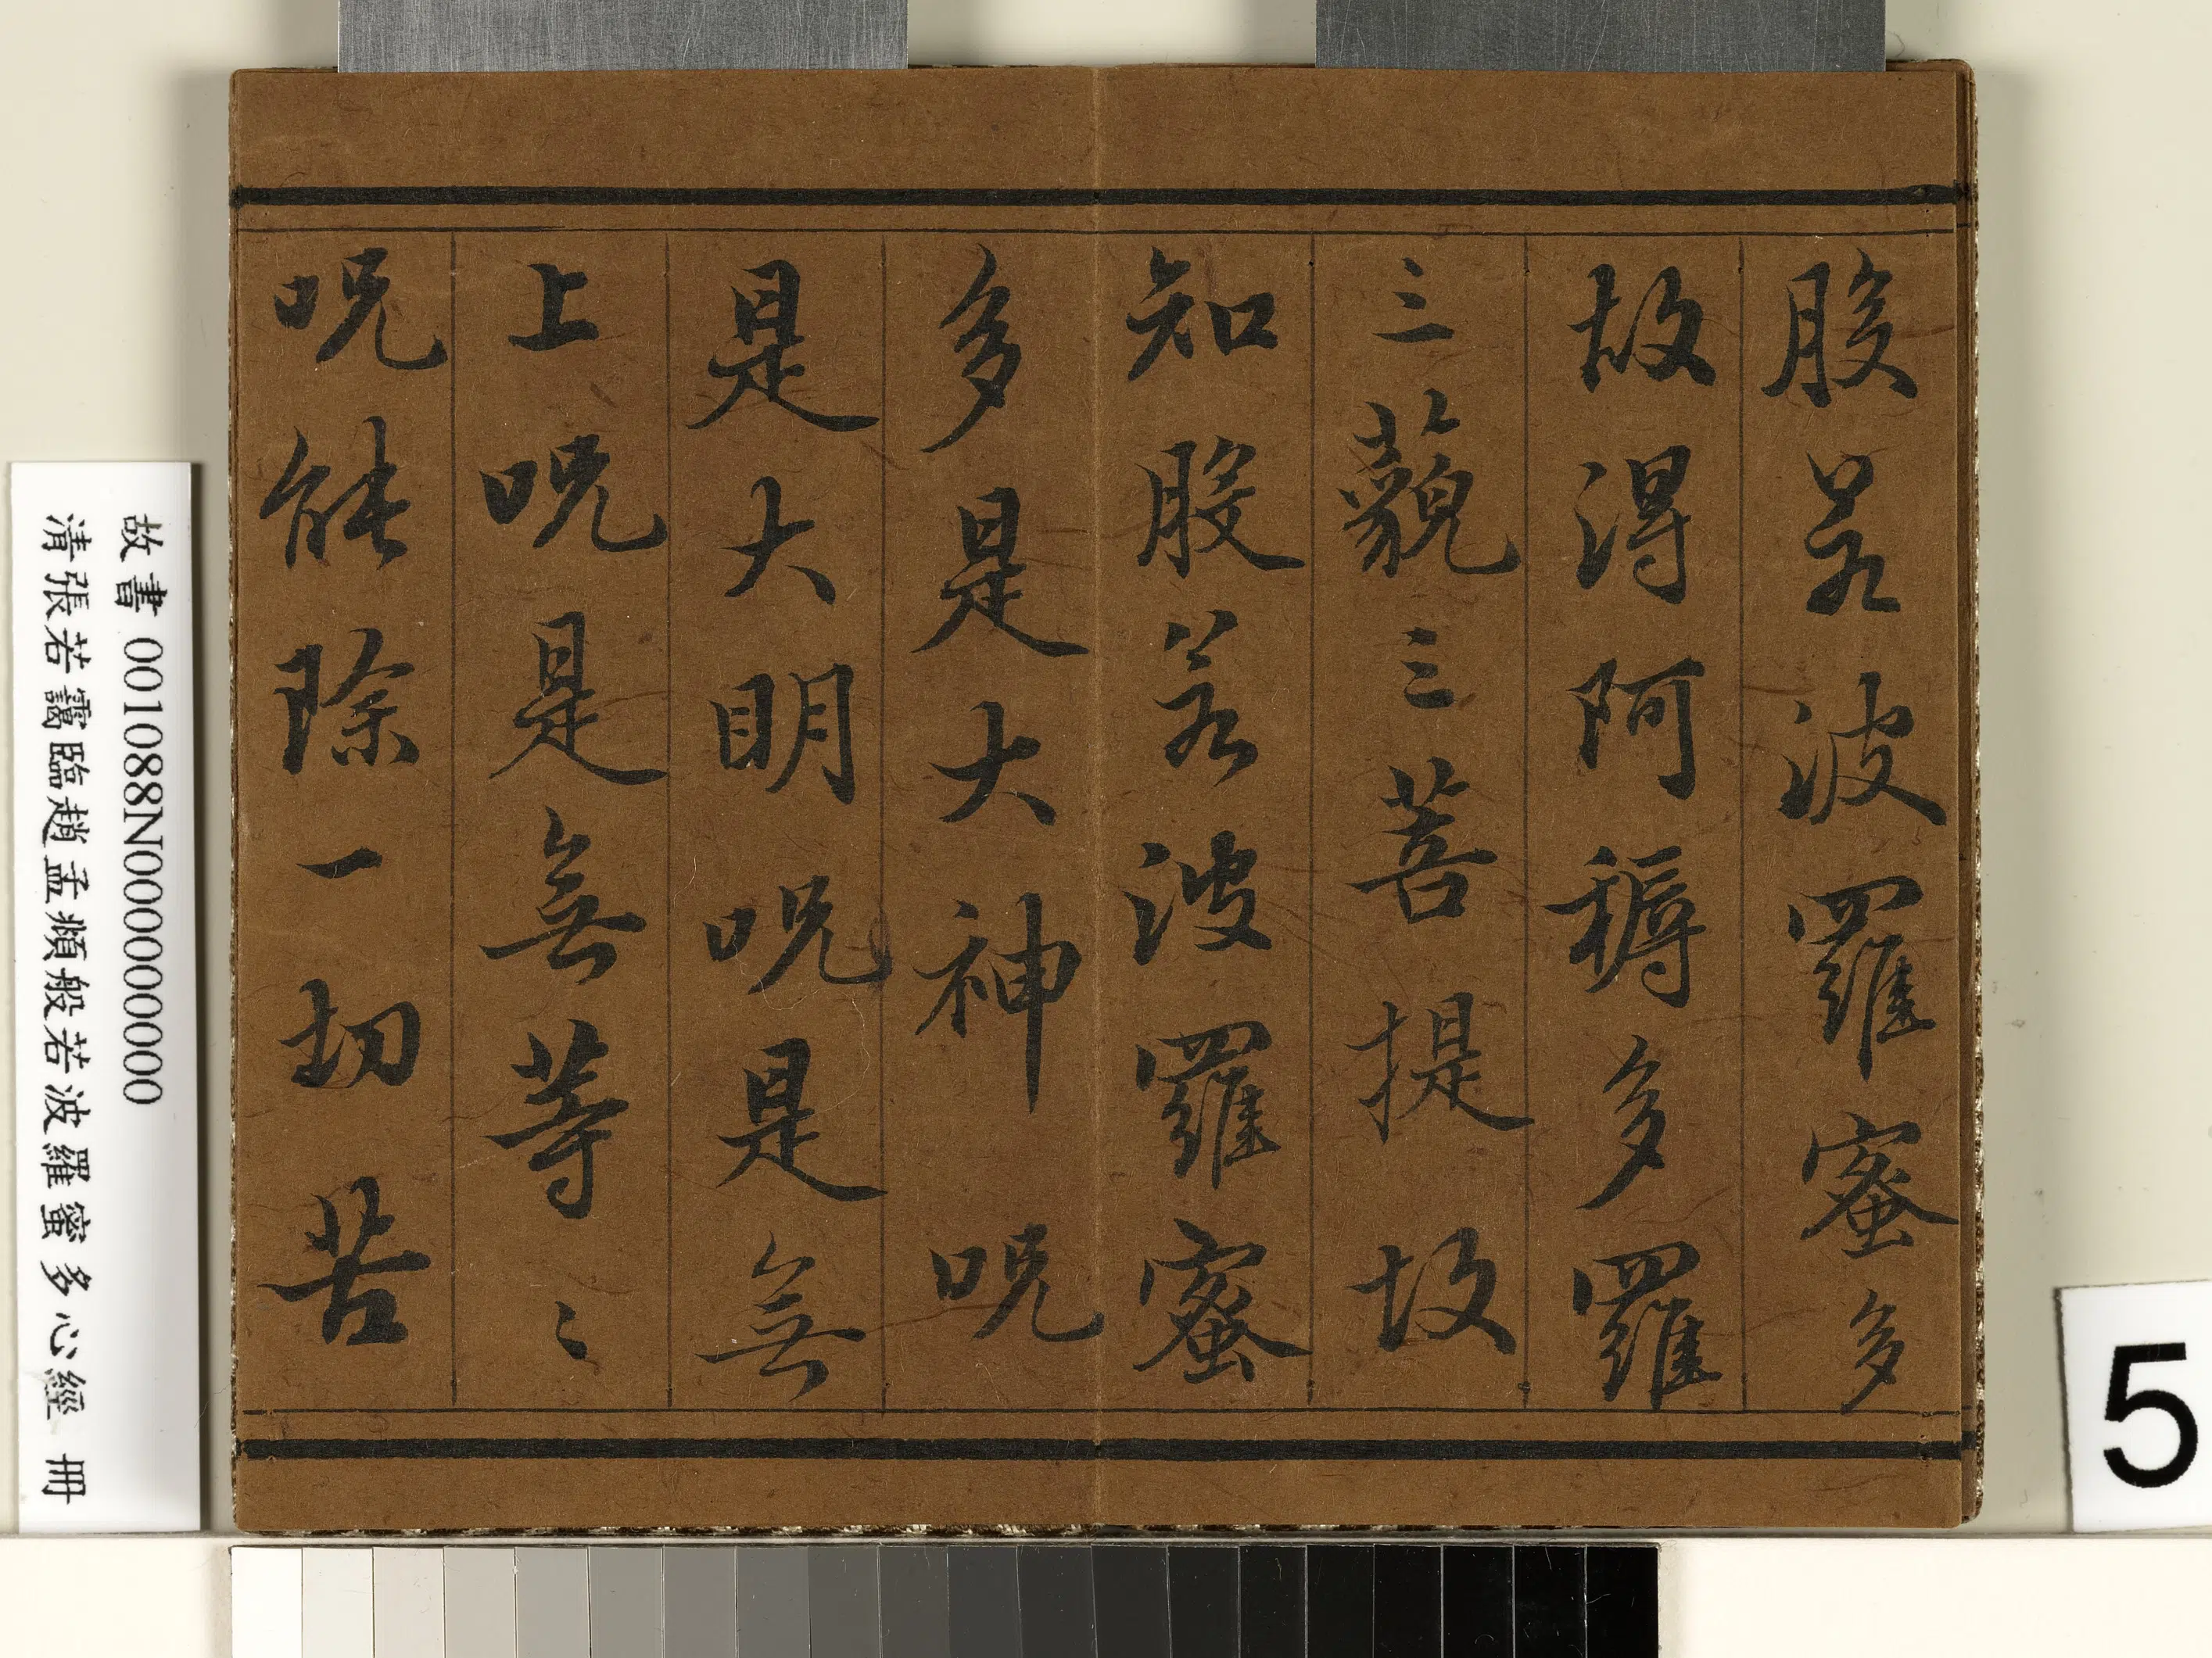 般若波羅蜜多
故得阿耨多羅
三藐三菩提故
知般若波羅蜜
多是大神呪
是大明呪是無
上呪是無等〻
呪能除一切苦
故書 001088N000000000
清張若靄臨趙孟頫般若波羅蜜多心經 冊
5